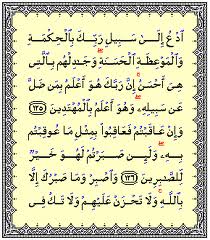 ٱدْعُ إِلَىٰ سَبِيلِ رَبِّكَ بِٱلْحِكْمَةِ
وَٱلْمَوْعِظَةِ ٱلْحَسَنَةِ وَجَٰدِلْهُم بِٱلَّتِى
هِىَ أَحْسَنُ إِنَّ رَبَّكَ هُوَ أَعْلَمُ بِمَن ضَلَّ
عَن سَبِيلِهِۦ وَهُوَ أَعْلَمُ بِٱلْمُهْتَدِينَ ١٢٥
وَإِنْ عَاقَبْتُمْ فَعَاقِبُوا۟ بِمِثْلِ مَا عُوقِبْتُم
بِهِۦ وَلَئِن صَبَرْتُمْ لَهُوَ خَيْرٌ
لِّلصَّٰبِرِينَ ١٢٦ وَٱصْبِرْ وَمَا صَبْرُكَ إِلَّا
بِٱللَّهِ وَلَا تَحْزَنْ عَلَيْهِمْ وَلَا تَكُ فِى